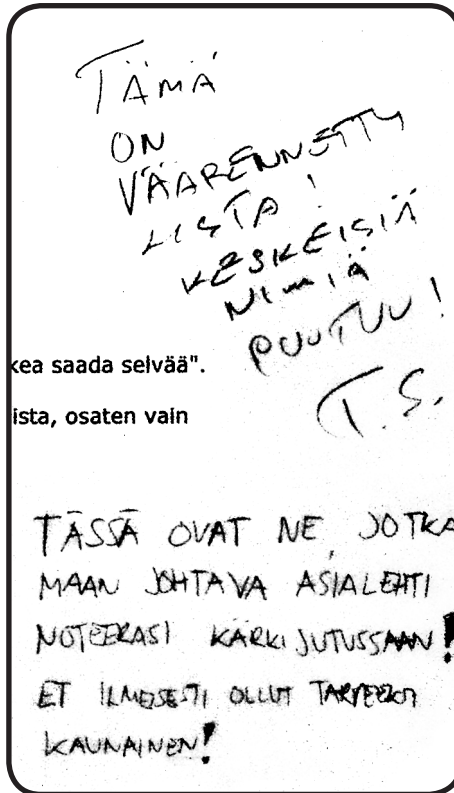 TÄMÄ
ON
VÄÄRENNETTY
LISTA!
KESKEISIÄ
NIMIÄ
PUUTUU!
T.S.
kea saada selvää".
ista, osaten vain
TÄSSÄ OVAT NE, JOTKA
MAAN JOHTAVA ASIALEHTI
NOTEERASI KÄRKIJUTUSSAAN!
ET ILMEISESTI OLLUT TARPEEKSI
KAUNAINEN!